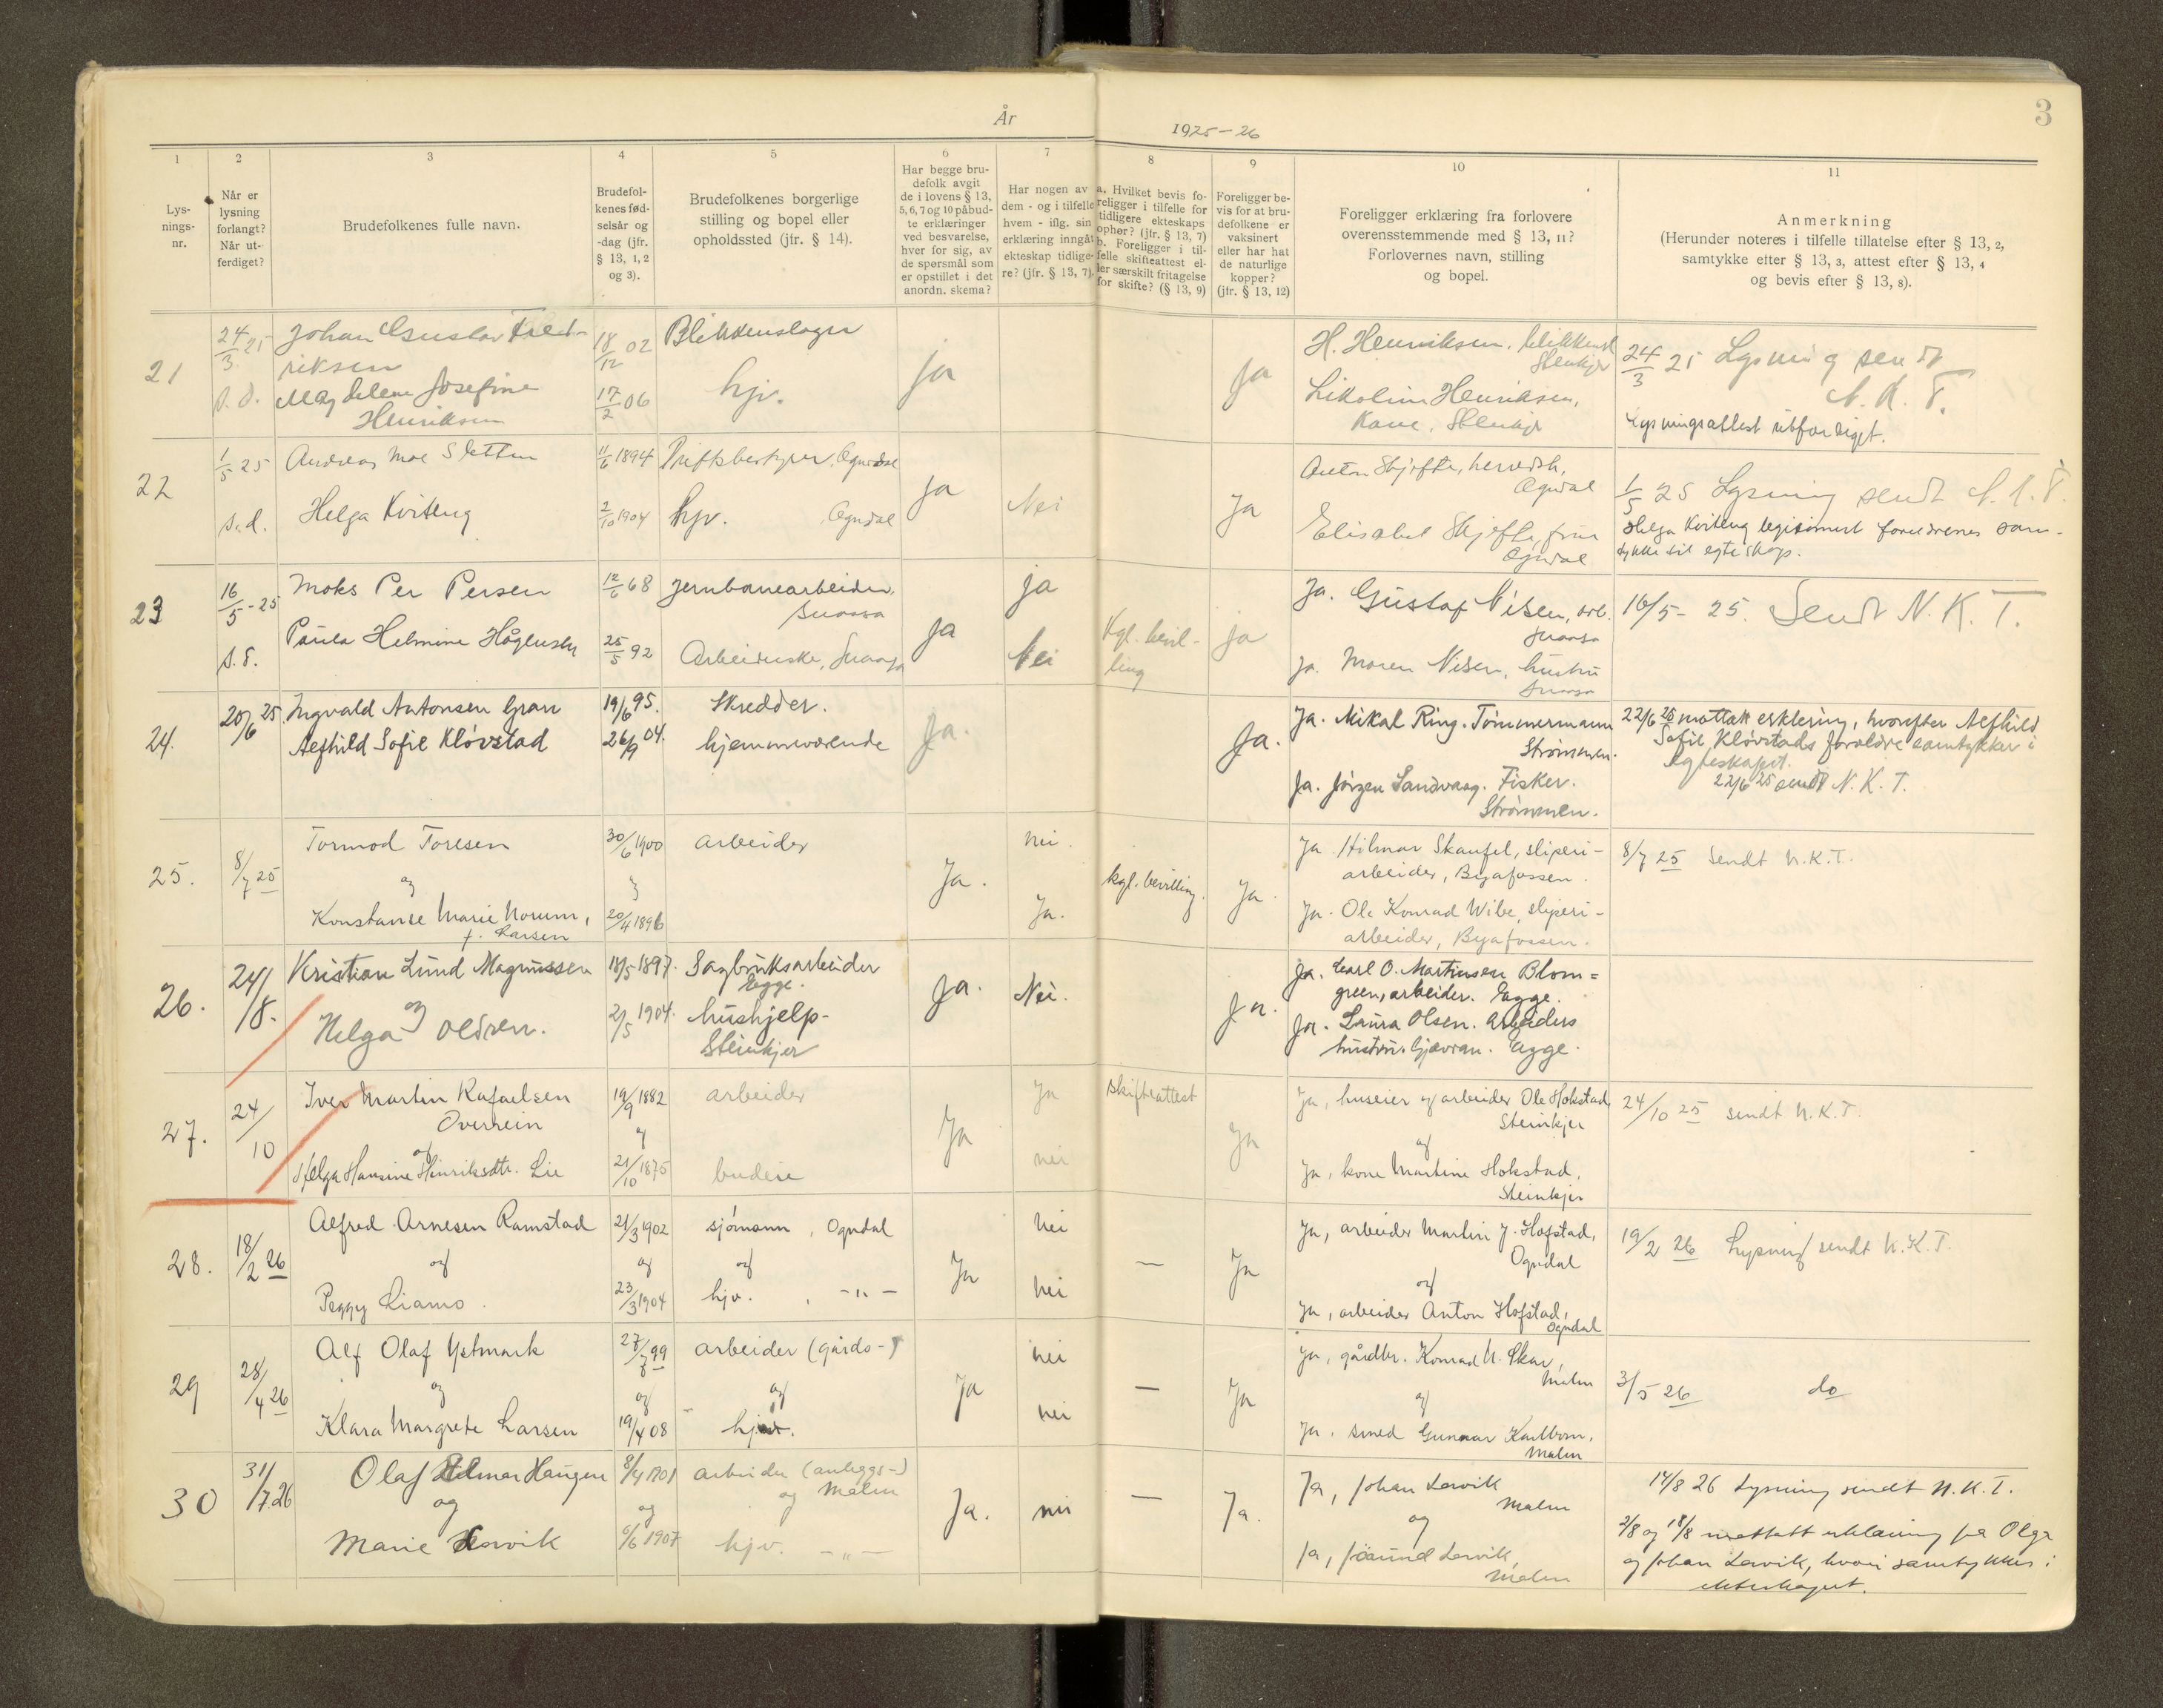 3
År 1925-26
1
2
3
4
5
6
7
8
9
10
11
Lys-
nings-
nr.
Når er
lysning
forlangt?
Når ut-
ferdiget?
Brudefolkenes fulle navn.
Brudefol-
kenes fød-
selsår og
-dag (jfr.
§ 13, 1, 2
og 3).
Brudefolkenes borgerlige
stilling og bopel eller
opholdssted (jfr. § 14).
Har begge bru-
defolk avgit
de i lovens § 13,
5, 6, 7 og 10 påbud-
te erklæringer
ved besvarelse,
hver for sig, av
de spørsmål som
er opstillet i det
anordn. skema?
Har nogen av
dem - og i tilfelle
hvem - iflg. sin
erklæring inngåt
ekteskap tidlige-
re? (jfr. § 13, 7).
a. Hvilket bevis fo-
religger i tilfelle for
tidligere ekteskaps
ophør? (jfr. § 13, 7)
b. Foreligger i til-
felle skifteattest el-
ler særskilt fritagelse
for skifte? (§ 13, 9)
Foreligger be-
vis for at bru-
defolkene er
vaksinert
eller har hat
de naturlige
kopper?
(jfr. § 13, 12)
Foreligger erklæring fra forlovere
overensstemmende med § 13, 11?
Forlovernes navn, stilling
og bopel.
Anmerkning
(Herunder noteres i tilfelle tillatelse efter § 13, 2,
samtykke efter § 13, 3, attest efter § 13, 4
og bevis efter § 13, 8).
21
24/3 25
s. d.
Johan Gustav Fred-
riksen
Magdelene Josefine
Henriksen
18/12 02
17/2 06
Blikkenslager
hjv.
ja
ja
H. Henriksen, blikkensl
Stenkjr
Likoline Henriksen,
Kone, Stenkjr
24/3 25 Lysning sendt
N. K. T.
Lysningsattest utferdiget.
22
1/5 25
s. d.
Andreas Moe Sletten
Helga Kviteng
11/6 1894
2/10 1904
Driftsbestyrer, Ogndal
hjv. Ogndal
ja
Nei
Ja
Anton Skjefte, herredsk,
Ogndal
Elisabet Skjefte, frue
Ogndal
1/5 25 Lysning sendt N. K. T.
Helga Kviteng legitimert foreldrenes sam-
tykke til egteskap.
23
16/5 - 25
s. d.
Moks Per Persen
Paula Helmine Håglund
12/6 68
25/5 92
Jernbanearbeider,
Snaasa
Arbeiderske, Snaasa
ja
ja
Nei
Kgl. bevil-
ling
ja
Ja. Gustaf Nisen, arb.
Snaasa
ja. Maren Nisen, hustru
Snaasa
16/5 - 25. Sendt N. K. T.
24.
20/6 25.
Ingvald Antonsen Gran
Alfhild Sofie Kløvstad
19/6 95.
26/9 04.
Skredder.
hjemmeværende
Ja.
Ja.
Ja. Mikal Ring. Tømmermann
Strømmen.
Ja. Jørgen Sandvaag. Fisker.
Strømmen.
22/6 25 mottatt erklering, hvorefter Alfhild
Sofie Kløvstads foreldre samtykker i
egteskapet.
22/6 25 sendt N. K. T.
25.
8/7 25
Tormod Toresen
og
Konstanse Marie Norum,
f. Larsen
30/6 1900
og
20/4 1896
arbeider
Ja.
nei.
Ja.
kgl. bevilling
Ja.
Ja. Hilmar Skaufel, sliperi-
arbeider, Byafossen.
Ja. Ole Konrad Wibe, sliperi-
arbeider, Byafossen.
8/7 25 Sendt N.K.T.
26.
24/8.
Kristian Lund Magnussen
og
Helga Oldren.
18/5 1897.
2/5 1904.
Sagbruksarbeider
Egge.
hushjelp-
Steinkjer
Ja.
Nei.
Ja.
Ja. Carl O. Martinsen Blom=
green, arbeider. Egge.
Ja. Laura Olsen. Arbeiders
hustru. Gjævran. Egge.
27.
24/10
Iver Martin Rafaelsen
Overrein
og
Helga Hansine Hinriksdtr. Lie
19/9 1882
og
21/10 1875
arbeider
budeie
Ja
Ja
nei
Skifteattest
Ja
Ja, huseier og arbeider Ole Hokstad,
Steinkjer
og
Ja, kone Martine Hokstad,
Steinkjer
24/10 25 sendt N.K.T.
28.
18/2 26
Alfred Arnesen Ramstad
og
Peggy Liamo.
21/3 1902
og
23/3 1904
sjømann, Ogndal
og
hjv. , -"-
Ja
nei
nei
—
Ja
Ja, arbeider Martin J. Hofstad,
Ogndal
og
Ja, arbeider Anton Hofstad,
Ogndal
19/2 26 Lysning sendt N.K.T.
29
28/4 26
Alf Olaf Ystmark
og
Klara Margrete Larsen
27/7 99
og
19/4 08
arbeider (gårds-)
og
hjv.
Ja
nei
nei
—
Ja
Ja, gårdbr. Konrad N. Skar,
Malm
og
Ja, smed Gunnar Karlbom,
Malm
3/5 26 do
30
31/7 26
Olaf Hilmar Haugen
og
Marie Lervik
8/4 1901
og
6/6 1907
arbeider (anleggs-)
og Malm
hjv. -"-
Ja.
nei
—
Ja.
Ja, Johan Lervik
Malm
og
Ja, Lervik,
Malm
14/8 26 Lysning sendt N. K. T.
2/8 og 18/8 mottatt erklæring fra Olga
og Johan Lervik, hvori samtykkes i
ekteskapet.